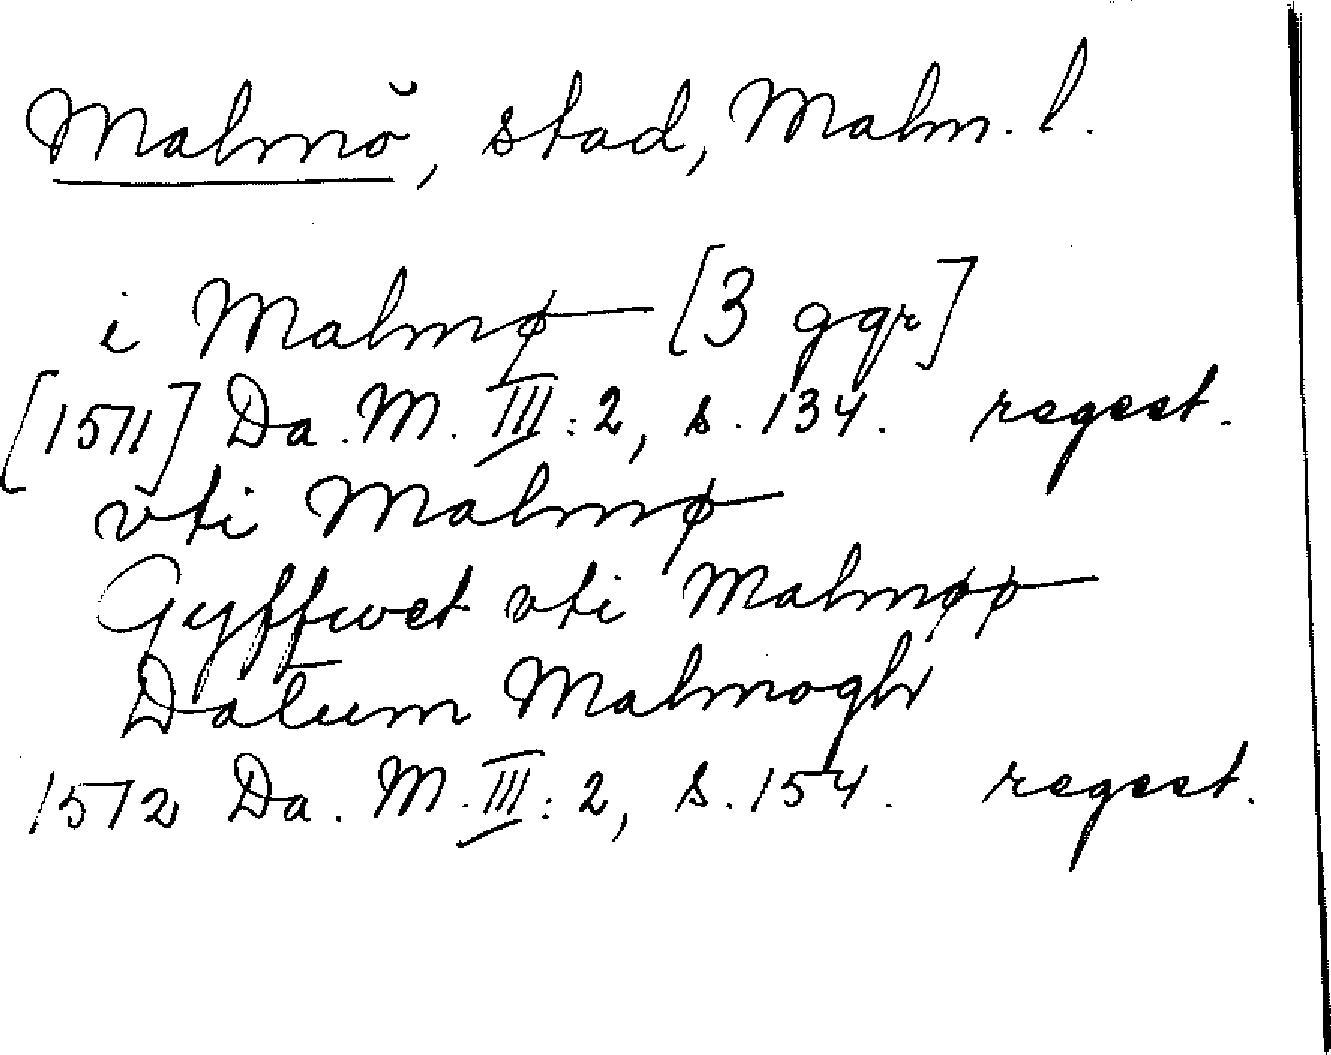 Malmö, stad, Malm. l.
i Malmø [3 ggr]
[1571] Da. M. III: 2, s. 134. regest.
vti Malmø
Gyffwet vti Malmøø
Datum Malmogh
1572 Da. M. III: 2, s. 154. regest.